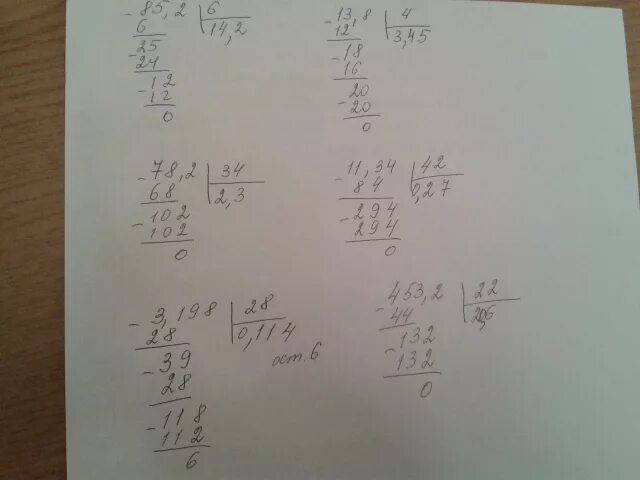 - 85,2 | 6
6 | 14,2
- 25
24
- 12
12
0
- 13,8 | 4
12 | 3,45
- 18
16
- 20
20
0
- 78,2 | 34
68 | 2,3
- 102
102
0
- 11,34 | 42
84 | 0,27
- 294
294
0
- 3,198 | 28
28 | 0,114
- 39 ост. 6
28
- 118
112
6
- 453,2 | 22
44 | 20,6
- 132
132
0